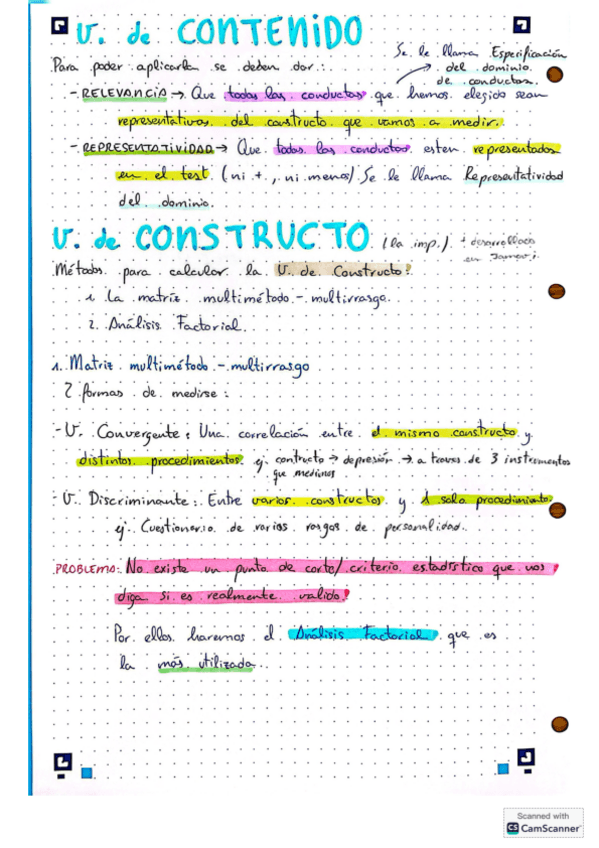 V. de CONTENIDO
Para poder aplicarla se deben dar:
Se le llama Especificación
del dominio
de conductas.
- RELEVANCIA → Que todas las conductas que hemos elegido sean
representativas del constructo que vamos a medir.
- REPRESENTATIVIDAD → Que todas las conductas esten representadas
en el test (ni +, ni menos) Se le llama Representatividad
del dominio.
V. de CONSTRUCTO (la imp.) + desarrollada
en
Métodos para calcular la V. de Constructo:
1. La matriz multimétodo - multirrasgo.
2. Análisis Factorial.
1. Matriz multimétodo - multirrasgo
2 formas de medirse:
- V. Convergente: Una correlación entre el mismo constructo y
distintos procedimientos ej contructo → depresión → a traves de 3 instrumentos
que medimos
- V. Discriminante: Entre varios constructos y 1 solo procedimiento.
ej. Cuestionario de varios rasgos de personalidad.
PROBLEMA: No existe un punto de corte/criterio estadístico que nos
diga si es realmente valido!
Por ellos haremos el Análisis Factorial que es
la más utilizada.
Scanned with
CS CamScanner